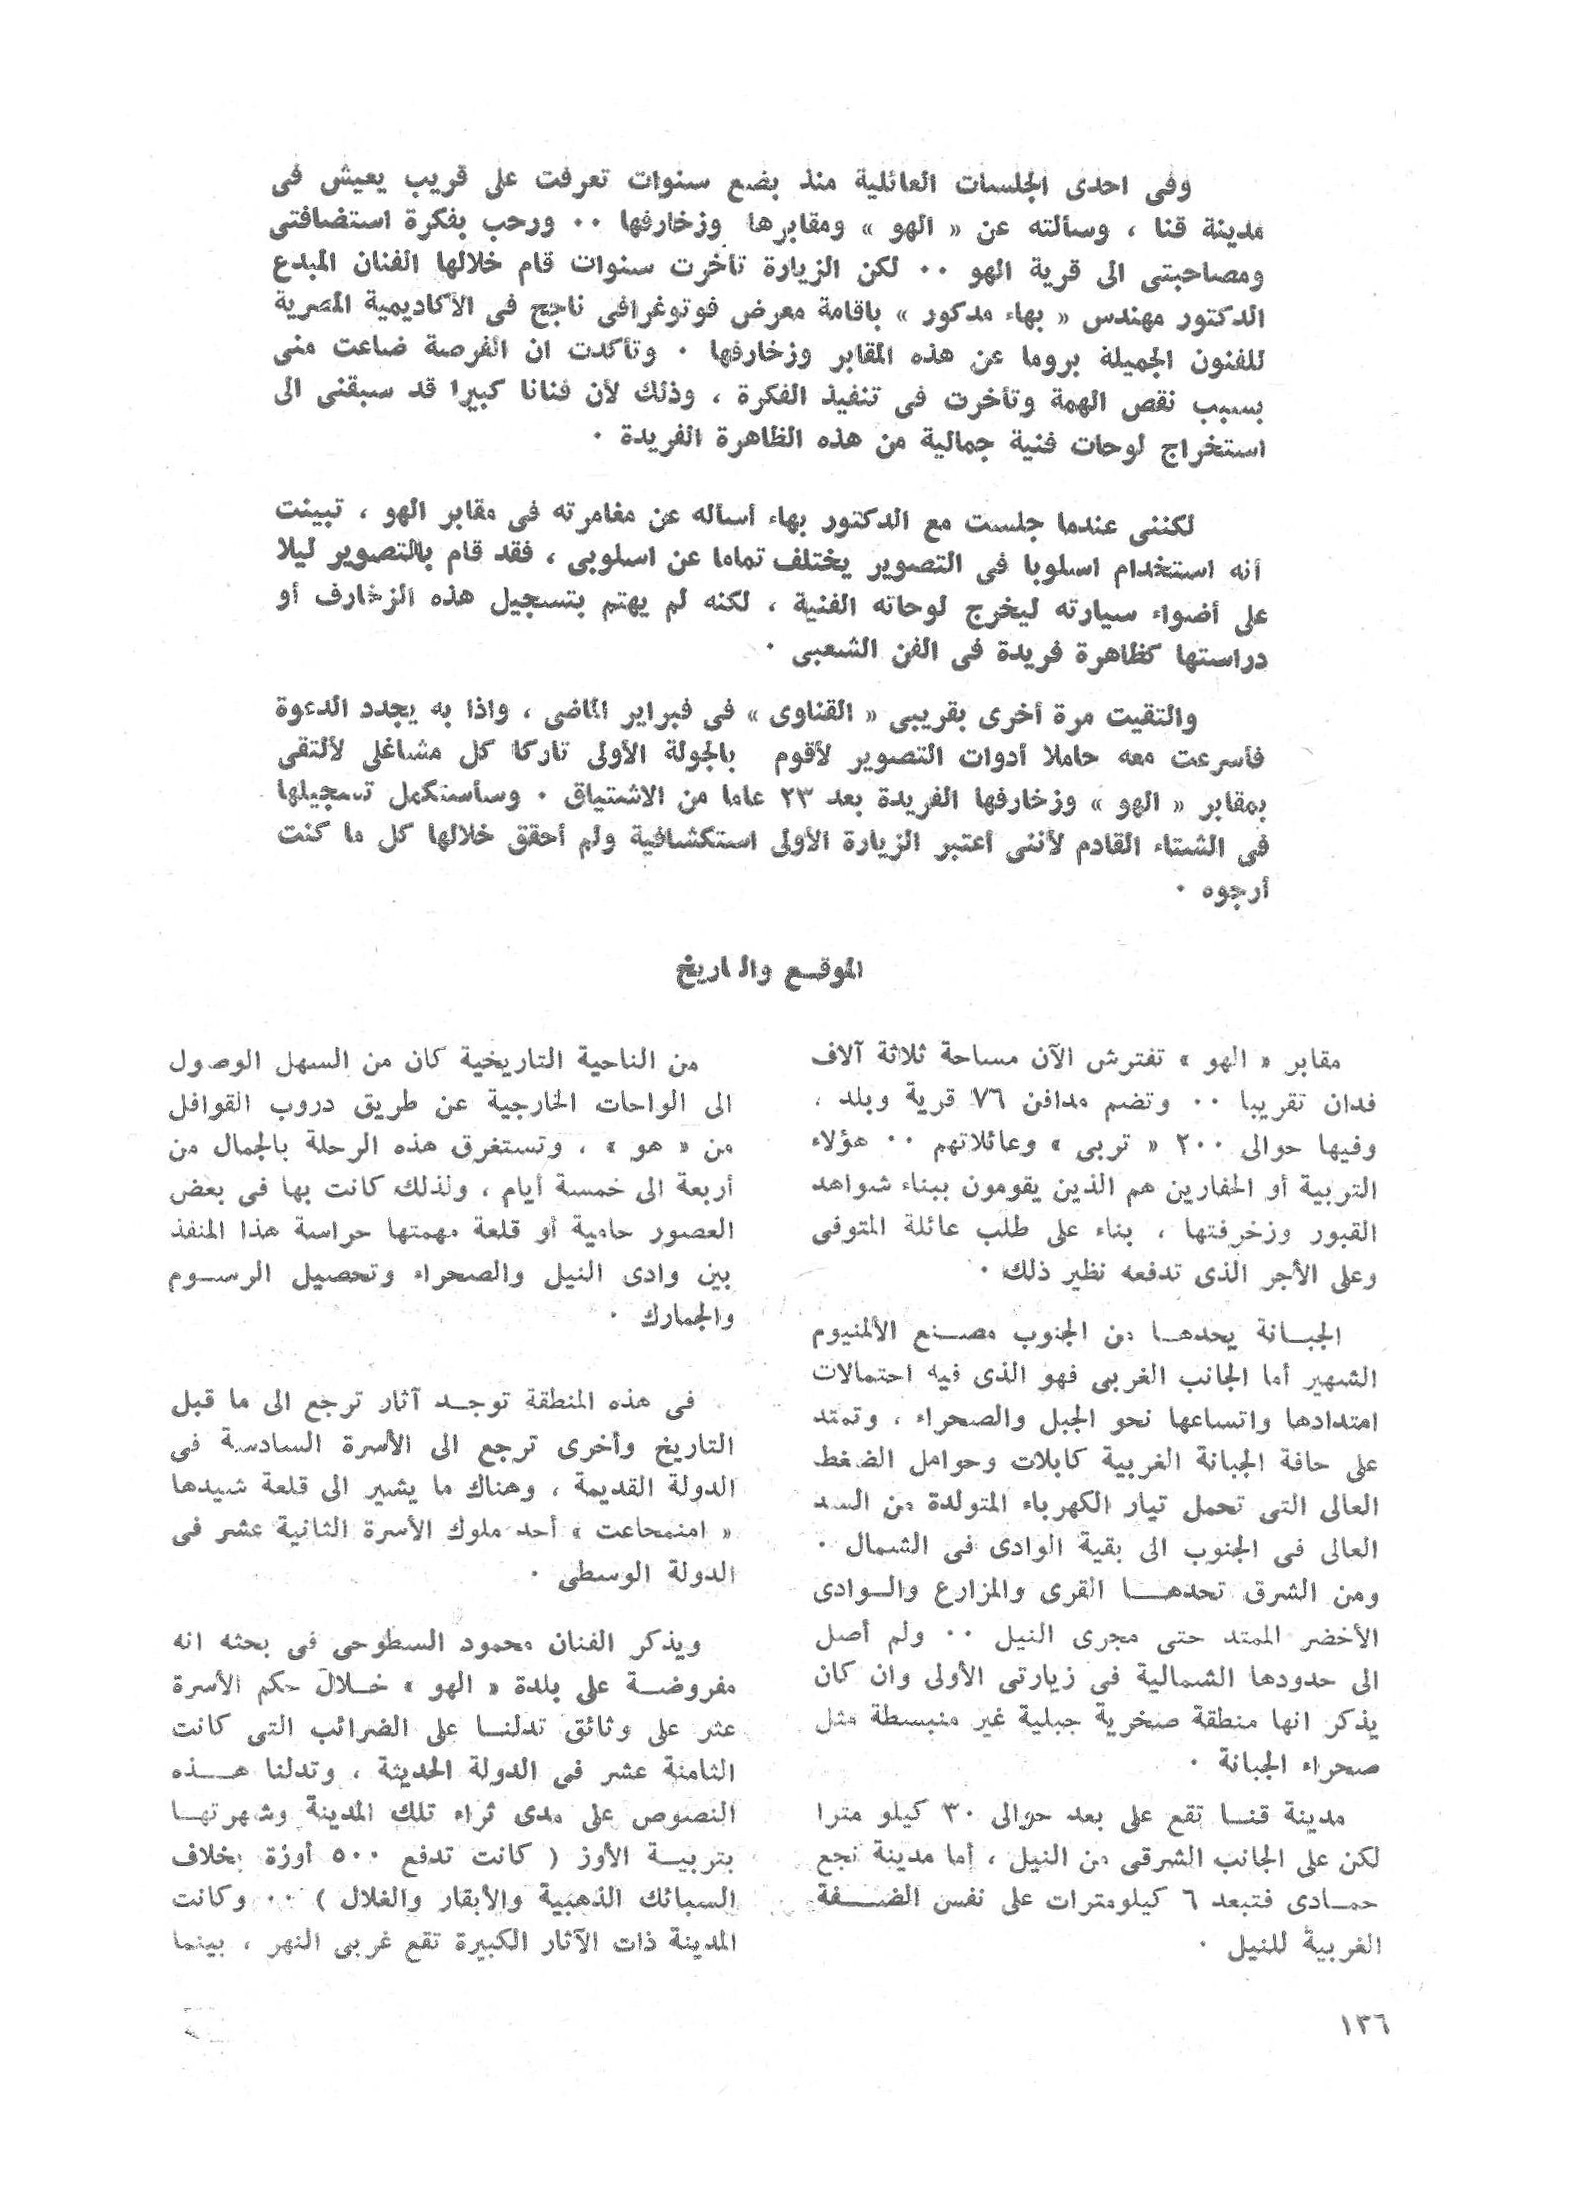 وفى احدى الجلسات العائلية منذ بضع سنوات تعرفت على قريب يعيش فى
مدينة قنا ، وسألته عن « الهو » ومقابرها وزخارفها ٠٠ ورحب بفكرة استضافتى
ومصاحبتى الى قرية الهو ٠٠ لكن الزيارة تأخرت سنوات قام خلالها الفنان المبدع
الدكتور مهندس « بهاء مدكور » باقامة معرض فوتوغرافى ناجح فى الأكاديمية المصرية
للفنون الجميلة بروما عن هذه المقابر وزخارفها ٠ وتأكدت ان الفرصة ضاعت منى
بسبب نقص الهمة وتأخرت فى تنفيذ الفكرة ، وذلك لأن فنانا كبيرا قد سبقنى الى
استخراج لوحات فنية جمالية من هذه الظاهرة الفريدة ٠
لكننى عندما جلست مع الدكتور بهاء أسأله عن مغامرته فى مقابر الهو ، تبينت
أنه استخدام اسلوبا فى التصوير يختلف تماما عن اسلوبى ، فقد قام بالتصوير ليلا
على أضواء سيارته ليخرج لوحاته الفنية ، لكنه لم يهتم بتسجيل هذه الزخارف أو
دراستها كظاهرة فريدة فى الفن الشعبى ٠
والتقيت مرة أخرى بقريبى « القناوى » فى فبراير الماضى ، واذا به يجدد الدعوة
فأسرعت معه حاملا أدوات التصوير لأقوم بالجولة الأولى تاركا كل مشاغلى لألتقى
بمقابر « الهو » وزخارفها الفريدة بعد ٢٣ عاما من الاشتياق ٠ وسأستكمل تسجيلها
فى الشتاء القادم لأننى أعتبر الزيارة الأولى استكشافية ولم أحقق خلالها كل ما كنت
أرجوه ٠
الموقع والتاريخ
مقابر « الهو » تفترش الآن مساحة ثلاثة آلاف
فدان تقريبا ٠٠ وتضم مدافن ٧٦ قرية وبلد ،
وفيها حوالى ٢٠٠ « تربى » وعائلاتهم ٠٠ هؤلاء
التربية أو الحفارين هم الذين يقومون ببناء شواهد
القبور وزخرفتها ، بناء على طلب عائلة المتوفى
وعلى الأجر الذى تدفعه نظير ذلك ٠
الجبانة يحدها من الجنوب مصنع الألمنيوم
الشهير أما الجانب الغربى فهو الذى فيه احتمالات
امتدادها واتساعها نحو الجبل والصحراء ، وتمتد
على حافة الجبانة الغربية كابلات وحوامل الضغط
العالى التى تحمل تيار الكهرباء المتولدة من السد
العالى فى الجنوب الى بقية الوادى فى الشمال ٠
ومن الشرق تحدها القرى والمزارع والوادى
الأخضر الممتد حتى مجرى النيل ٠٠ ولم أصل
الى حدودها الشمالية فى زيارتى الأولى وان كان
يذكر انها منطقة صخرية جبلية غير منبسطة مثل
صحراء الجبانة ٠
مدينة قنا تقع على بعد حوالى ٣٠ كيلو مترا
لكن على الجانب الشرقى من النيل ، أما مدينة نجع
حمادى فتبعد ٦ كيلومترات على نفس الضفة
الغربية للنيل ٠
من الناحية التاريخية كان من السهل الوصول
الى الواحات الخارجية عن طريق دروب القوافل
من « هو » ، وتستغرق هذه الرحلة بالجمال من
أربعة الى خمسة أيام ، ولذلك كانت بها فى بعض
العصور حامية أو قلعة مهمتها حراسة هذا المنفذ
بين وادى النيل والصحراء وتحصيل الرسوم
والجمارك ٠
فى هذه المنطقة توجد آثار ترجع الى ما قبل
التاريخ وأخرى ترجع الى الأسرة السادسة فى
الدولة القديمة ، وهناك ما يشير الى قلعة شيدها
« امنمحاعت » أحد ملوك الأسرة الثانية عشر فى
الدولة الوسطى ٠
ويذكر الفنان محمود السطوحى فى بحثه انه
مفروضة على بلدة « الهو » خلال حكم الأسرة
عثر على وثائق تدلنا على الضرائب التى كانت
الثامنة عشر فى الدولة الحديثة ، وتدلنا هذه
النصوص على مدى ثراء تلك المدينة وشهرتها
بتربية الأوز ( كانت تدفع ٥٠٠ أوزة بخلاف
السبائك الذهبية والأبقار والغلال ) ٠٠ وكانت
المدينة ذات الآثار الكبيرة تقع غربى النهر ، بينما
١٣٦